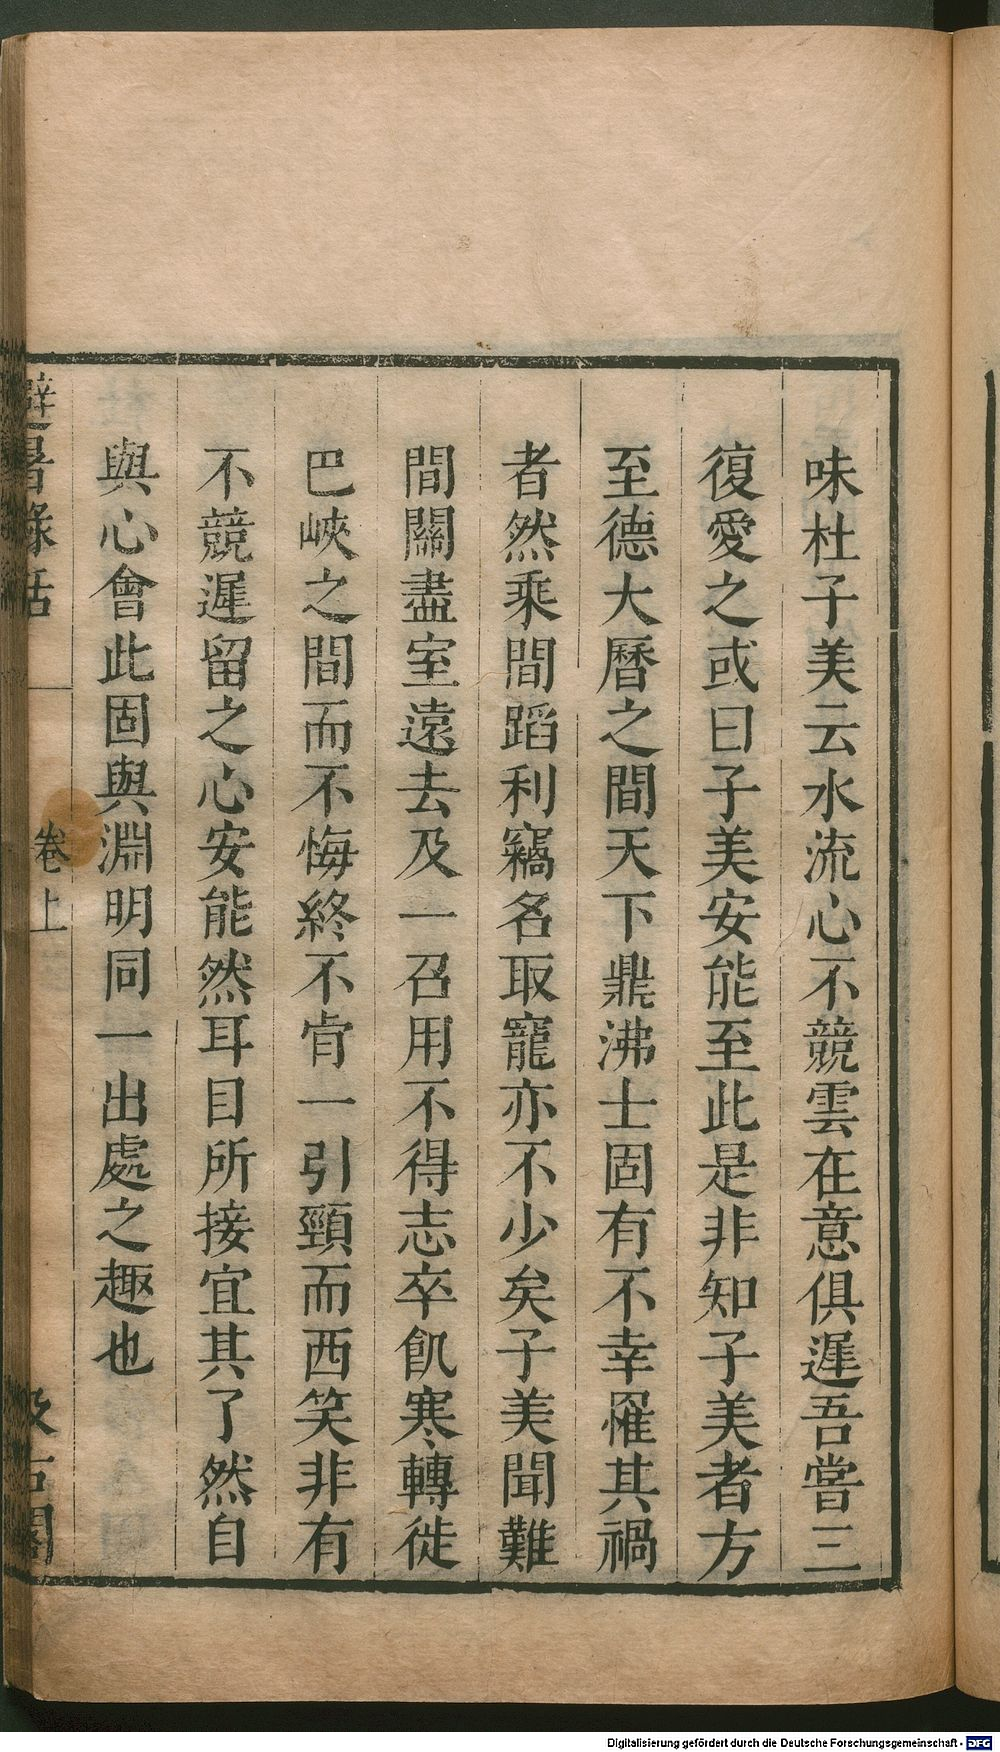 味杜子美云水流心不競雲在意俱遲吾嘗三
復愛之或曰子美安能至此是非知子美者方
至德大曆之間天下鼎沸士固有不幸罹其禍
者然乘間蹈利竊名取寵亦不少矣子美聞難
間關盡室遠去及一召用不得志卒飢寒轉徙
巴峽之間而不悔終不肯一引頸而西笑非有
不競遲留之心安能然耳目所接宜其了然自
與心會此固與淵明同一出處之趣也
避暑錄話
卷上
汲古閣
Digitalisierung gefördert durch die Deutsche Forschungsgemeinschaft - DFG